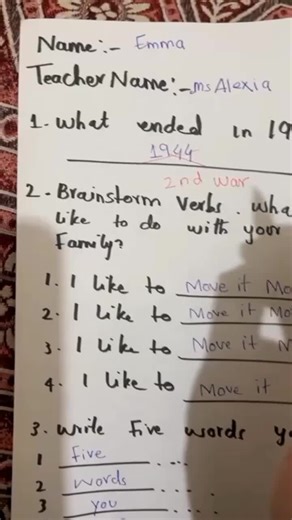 Name:- Emma
Teacher Name:- ms Alexia
1- What ended in 19
1944
2nd war
2- Brainstorm Verbs. Wha
like to do with your
Family?
1. I like to Move it Mo
2. I like to Move it Mo
3. I like to Move it M
4. I like to Move it
3. Write Five words y
1 Five
2 words
3 you